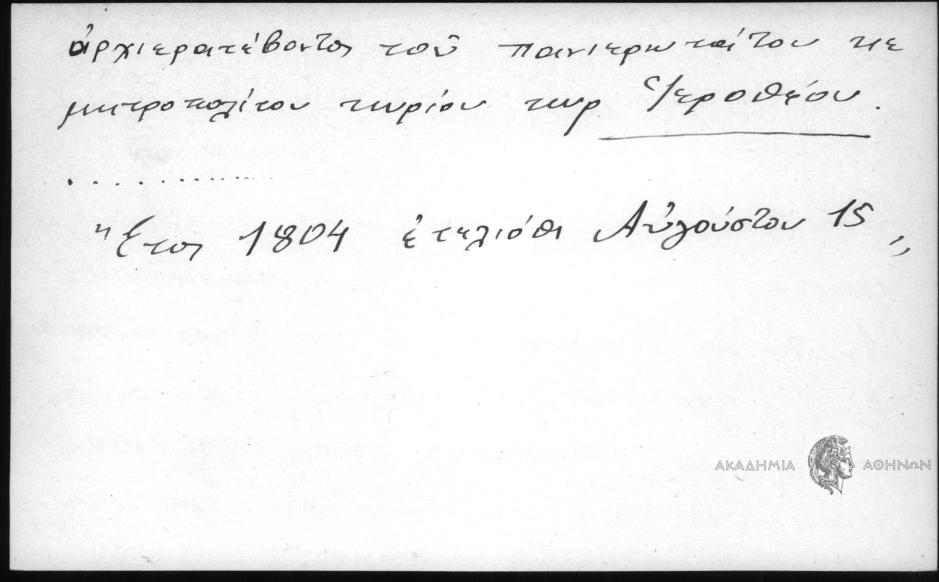 ἀρχιερατέβοντος τοῦ πανιερωτάτου κε
μητροπολίτου κυρίου κυρ Ἱεροθέου.
. . . . . . . . . . . . . .
"Ἔτος 1804 ἐτεлιόθι Αὐγούστου 15 "
ΑΚΑΔΗΜΙΑ ΑΘΗΝΩΝ